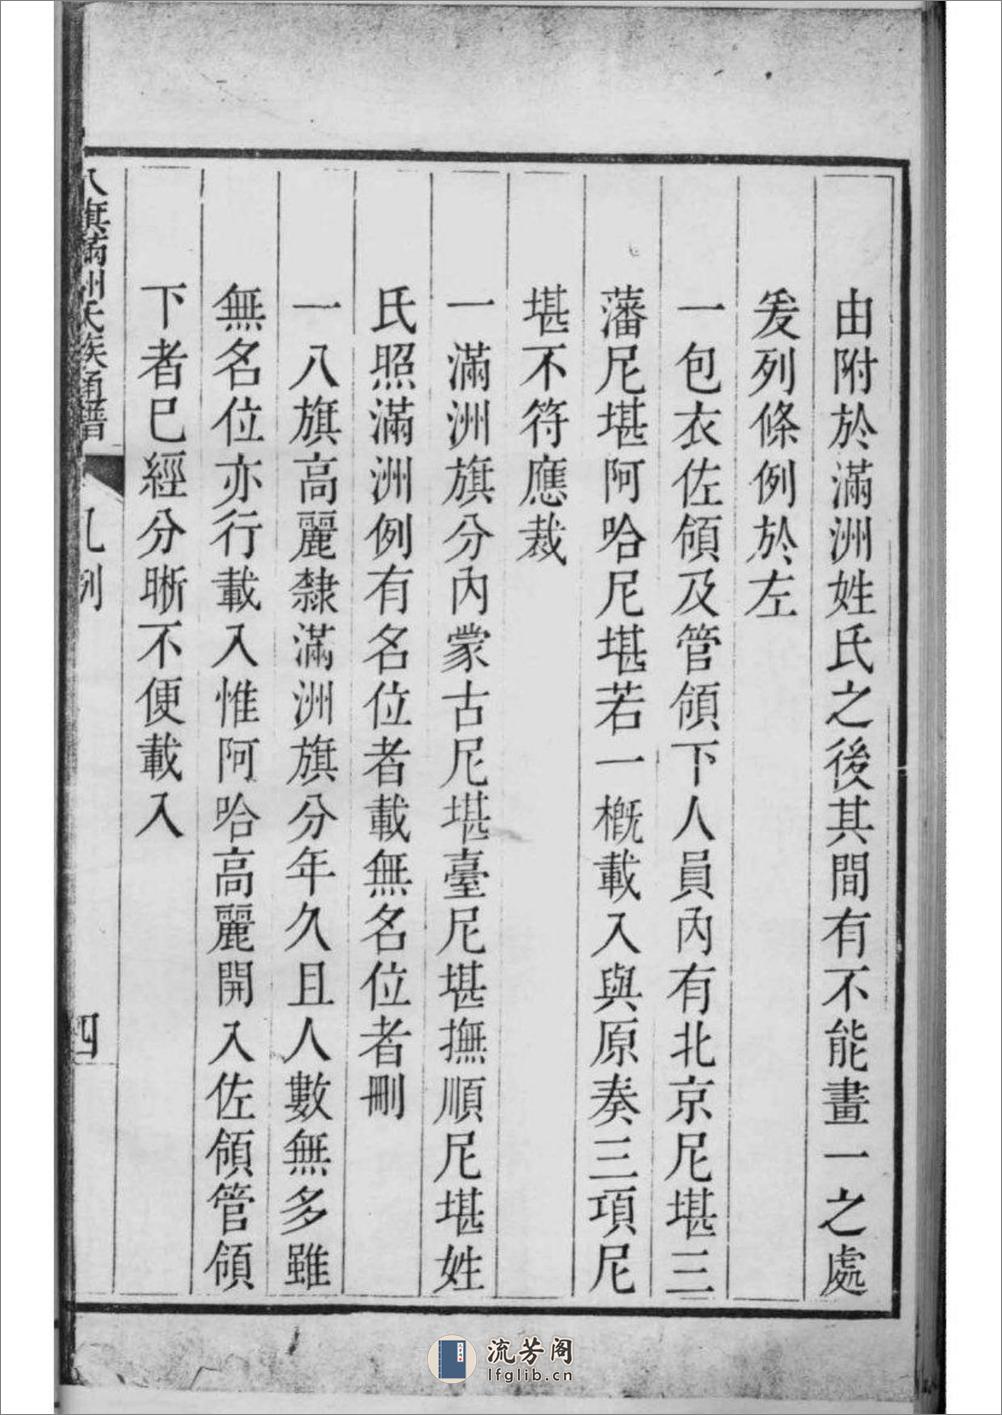 由附於滿洲姓氏之後其間有不能畫一之處
爰列條例於左
一包衣佐領及管領下人員內有北京尼堪三
藩尼堪阿哈尼堪若一槪載入與原奏三項尼
堪不符應裁
一滿洲旗分內蒙古尼堪臺尼堪撫順尼堪姓
氏照滿洲例有名位者載無名位者刪
一八旗高麗隸滿洲旗分年久且人數無多雖
無名位亦行載入惟阿哈高麗開入佐領管領
下者巳經分晰不便載入
八旗滿洲氏族通譜
凡例
四
流芳阁
lfglib.cn